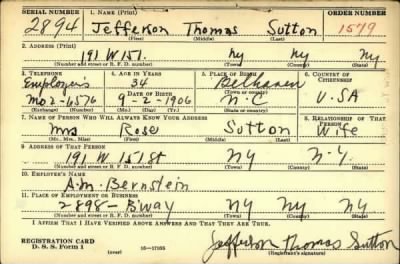 SERIAL NUMBER 1. NAME (Print) ORDER NUMBER
2894 Jefferson Thomas Sutton 1579
(First) (Middle) (Last)
2. ADDRESS (Print)
191 W 151. NY NY NY
(Number and street or R. F. D. number) (Town) (County) (State)
3. TELEPHONE 4. AGE IN YEARS 5. PLACE OF BIRTH 6. COUNTRY OF CITIZENSHIP
Employers 34 Belhaven
DATE OF BIRTH (Town or county)
Mo 2-6576 9-2-1906 N.C U.S.A
(Exchange) (Number) (Mo.) (Day) (Yr.) (State or country)
7. NAME OF PERSON WHO WILL ALWAYS KNOW YOUR ADDRESS 8. RELATIONSHIP OF THAT PERSON
Mrs Rose Sutton Wife
(Mr., Mrs., Miss) (First) (Middle) (Last)
9. ADDRESS OF THAT PERSON
191 W 151 St NY N.Y.
(Number and street or R. F. D. number) (Town) (County) (State)
10. EMPLOYER'S NAME
A.M. Bernstein
11. PLACE OF EMPLOYMENT OR BUSINESS
2898- Bway NY NY NY
(Number and street or R. F. D. number) (Town) (County) (State)
I AFFIRM THAT I HAVE VERIFIED ABOVE ANSWERS AND THAT THEY ARE TRUE.
REGISTRATION CARD
D. S. S. Form 1 (over) 16-17105 Jefferson Thomas Sutton
(Registrant's signature)